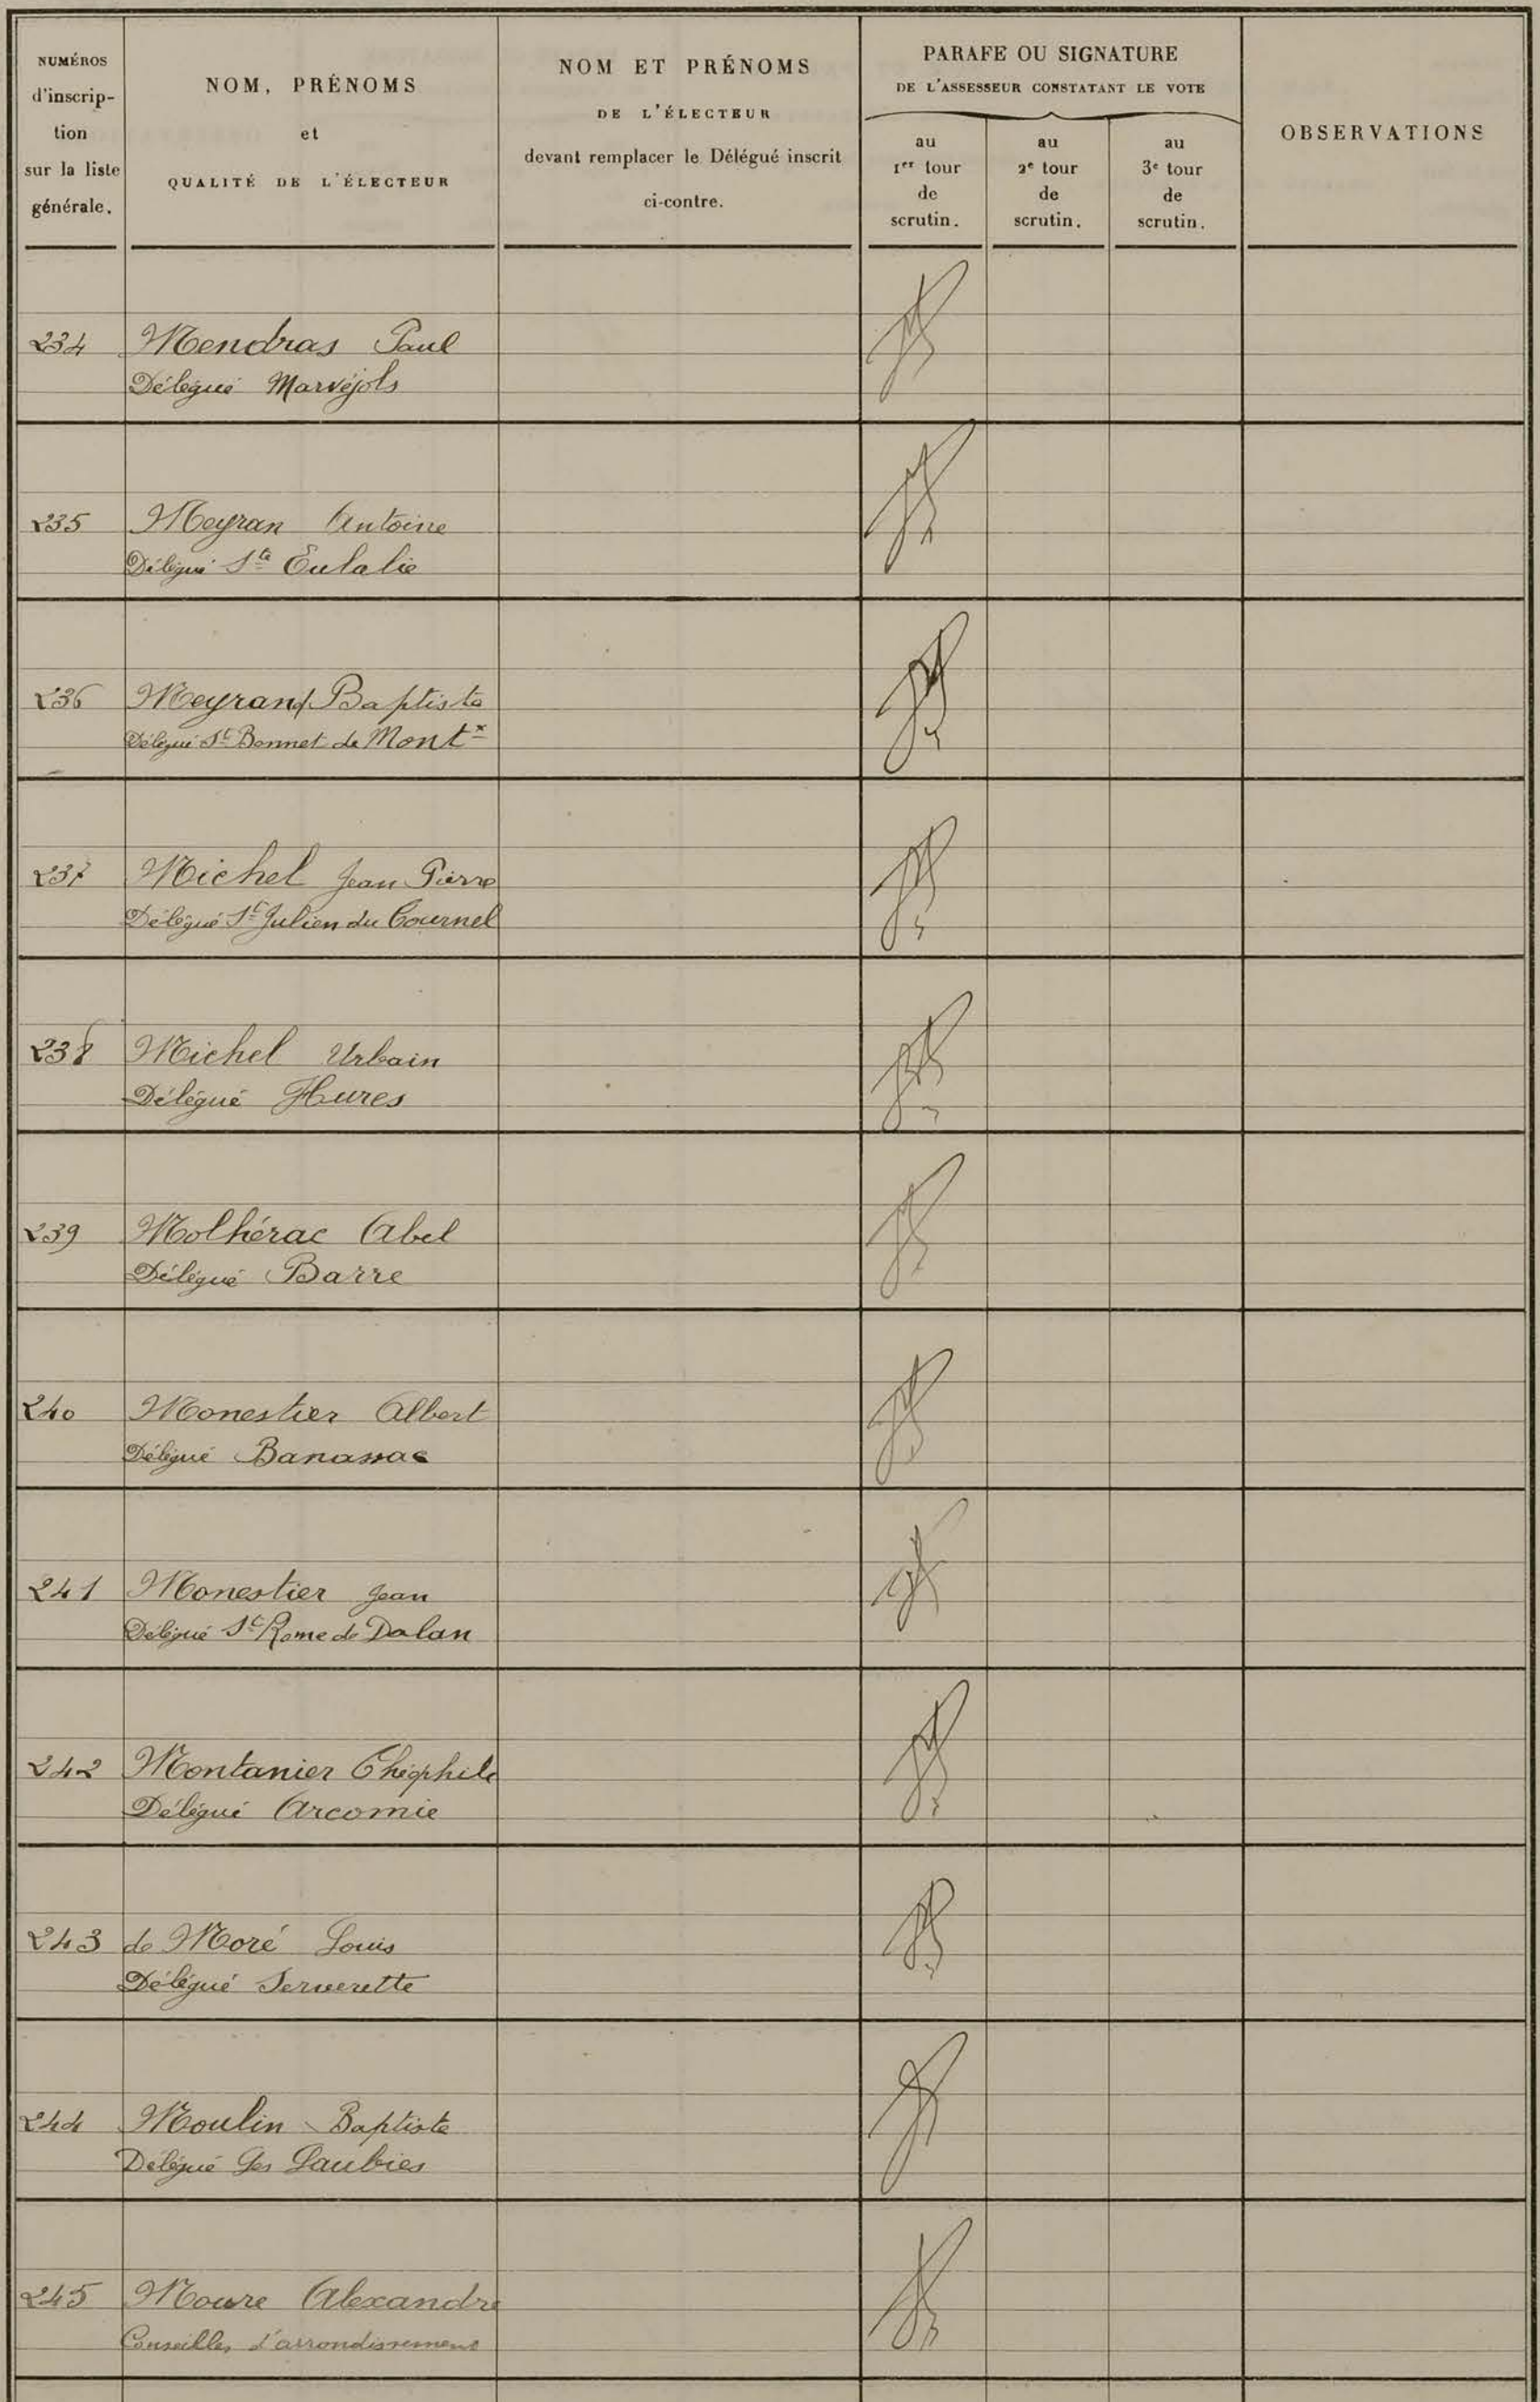 NUMÉROS
d'inscrip-
tion
sur la liste
générale.
NOM, PRÉNOMS
et
QUALITÉ DE L'ÉLECTEUR
NOM ET PRÉNOMS
DE L'ÉLECTEUR
devant remplacer le Délégué inscrit
ci-contre.
PARAFE OU SIGNATURE
DE L'ASSESSEUR CONSTATANT LE VOTE
au
1er tour
de
scrutin.
au
2e tour
de
scrutin.
au
3e tour
de
scrutin.
OBSERVATIONS
234 Mendras Paul
Délégué Marvéjols
235 Meyran Antoine
Délégué Ste Eulalie
236 Meyrand Baptiste
Délégué St Bonnet de Montx
237 Michel Jean Pierre
Délégué St Julien du Tournel
238 Michel Urbain
Délégué Hures
239 Molhérac Abel
Délégué Barre
240 Monestier Albert
Délégué Banassac
241 Monestier Jean
Délégué St Rome de Dolan
242 Montanier Théophile
Délégué Arcomie
243 de Moré Louis
Délégué Serverette
244 Moulin Baptiste
Délégué Les Laubies
245 Moure Alexandre
Conseiller d'arrondissement